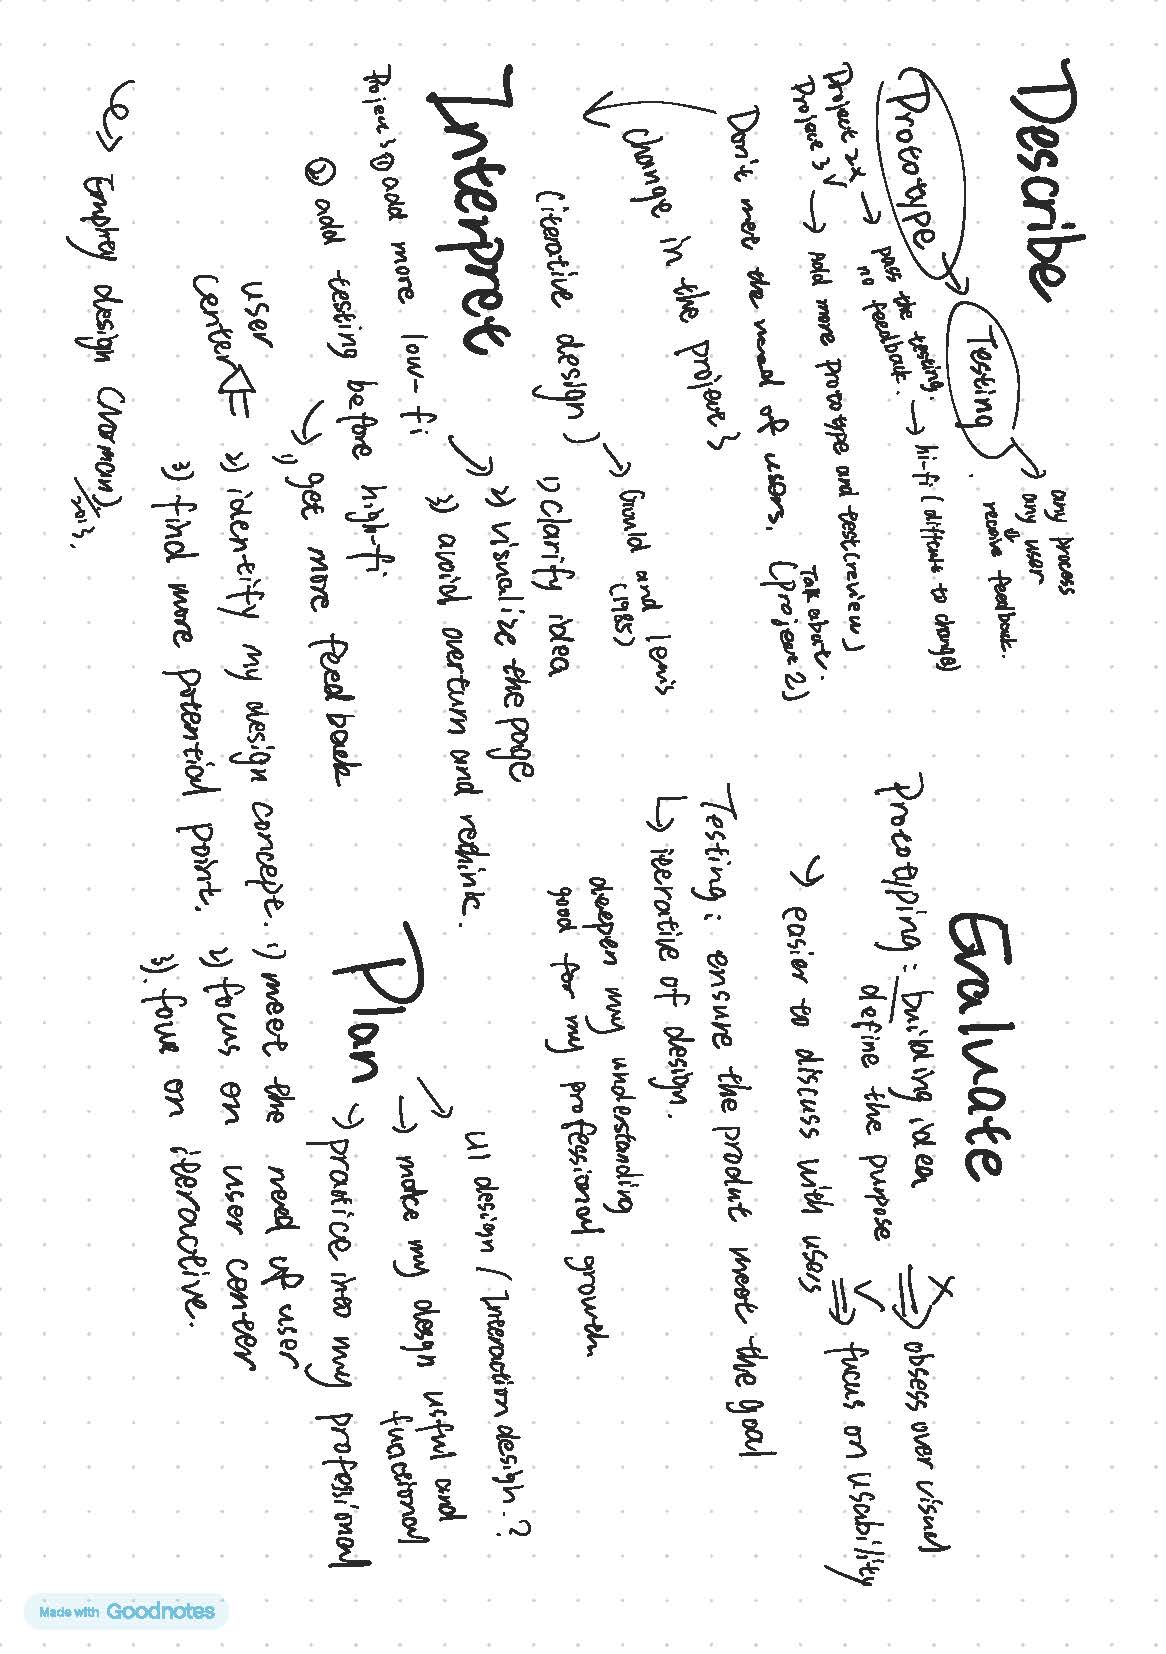 Describe
Prototype → Testing → any process
any user
↓
receive feedback.
Project 2x → pass the testing. → hi-fi (difficult to change)
no feedback.
Project 3 √ → Add more prototype and test (review)
Talk about.
Don't met the need of users. (Project 2)
change in the project 3
(iterative design) → Gould and lewis
(1985)
Interpret
Project 3 ① add more low-fi → 1) clarify idea
2) visualize the page
3) avoid overturn and rethink.
② add testing before high-fi
→ 1) get more feedback
user
center ⇐ 2) identify my design concept.
3) find more potential point.
→ design (Norman)
2013.
Evaluate
Prototyping: building idea
define the purpose
→ easier to discuss with users
X ⇒ obsess over visual
√ ⇒ focus on usability
Testing: ensure the product meet the goal
↳ iterative of design.
deepen my understanding
good for my professional growth
Plan
→ UI design / Interaction design?
→ make my design usful and
functional
→ practice into my professional
1) meet the need of user
2) focus on user center
3). on iteractive.
Made with Goodnotes